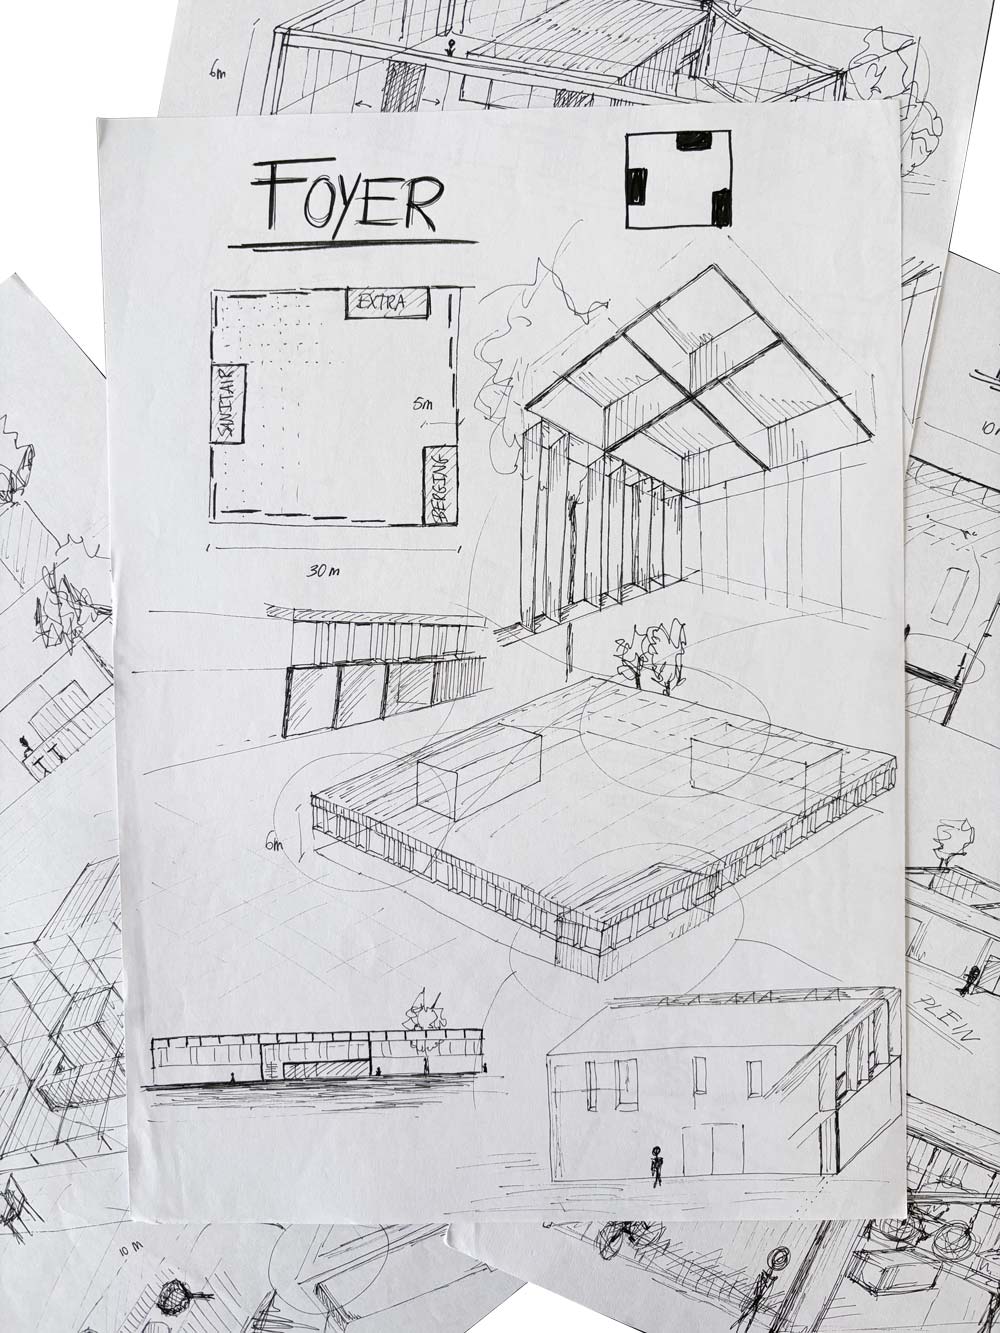 6m
FOYER
EXTRA
SANITAIR
5m
BERGING
30 m
10
6m
PLEIN
10 m